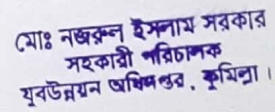 মোঃ নজরুল ইসলাম সরকার
সহকারী পরিচালক
যুবউন্নয়ন অধিদপ্তর, কুমিল্লা।